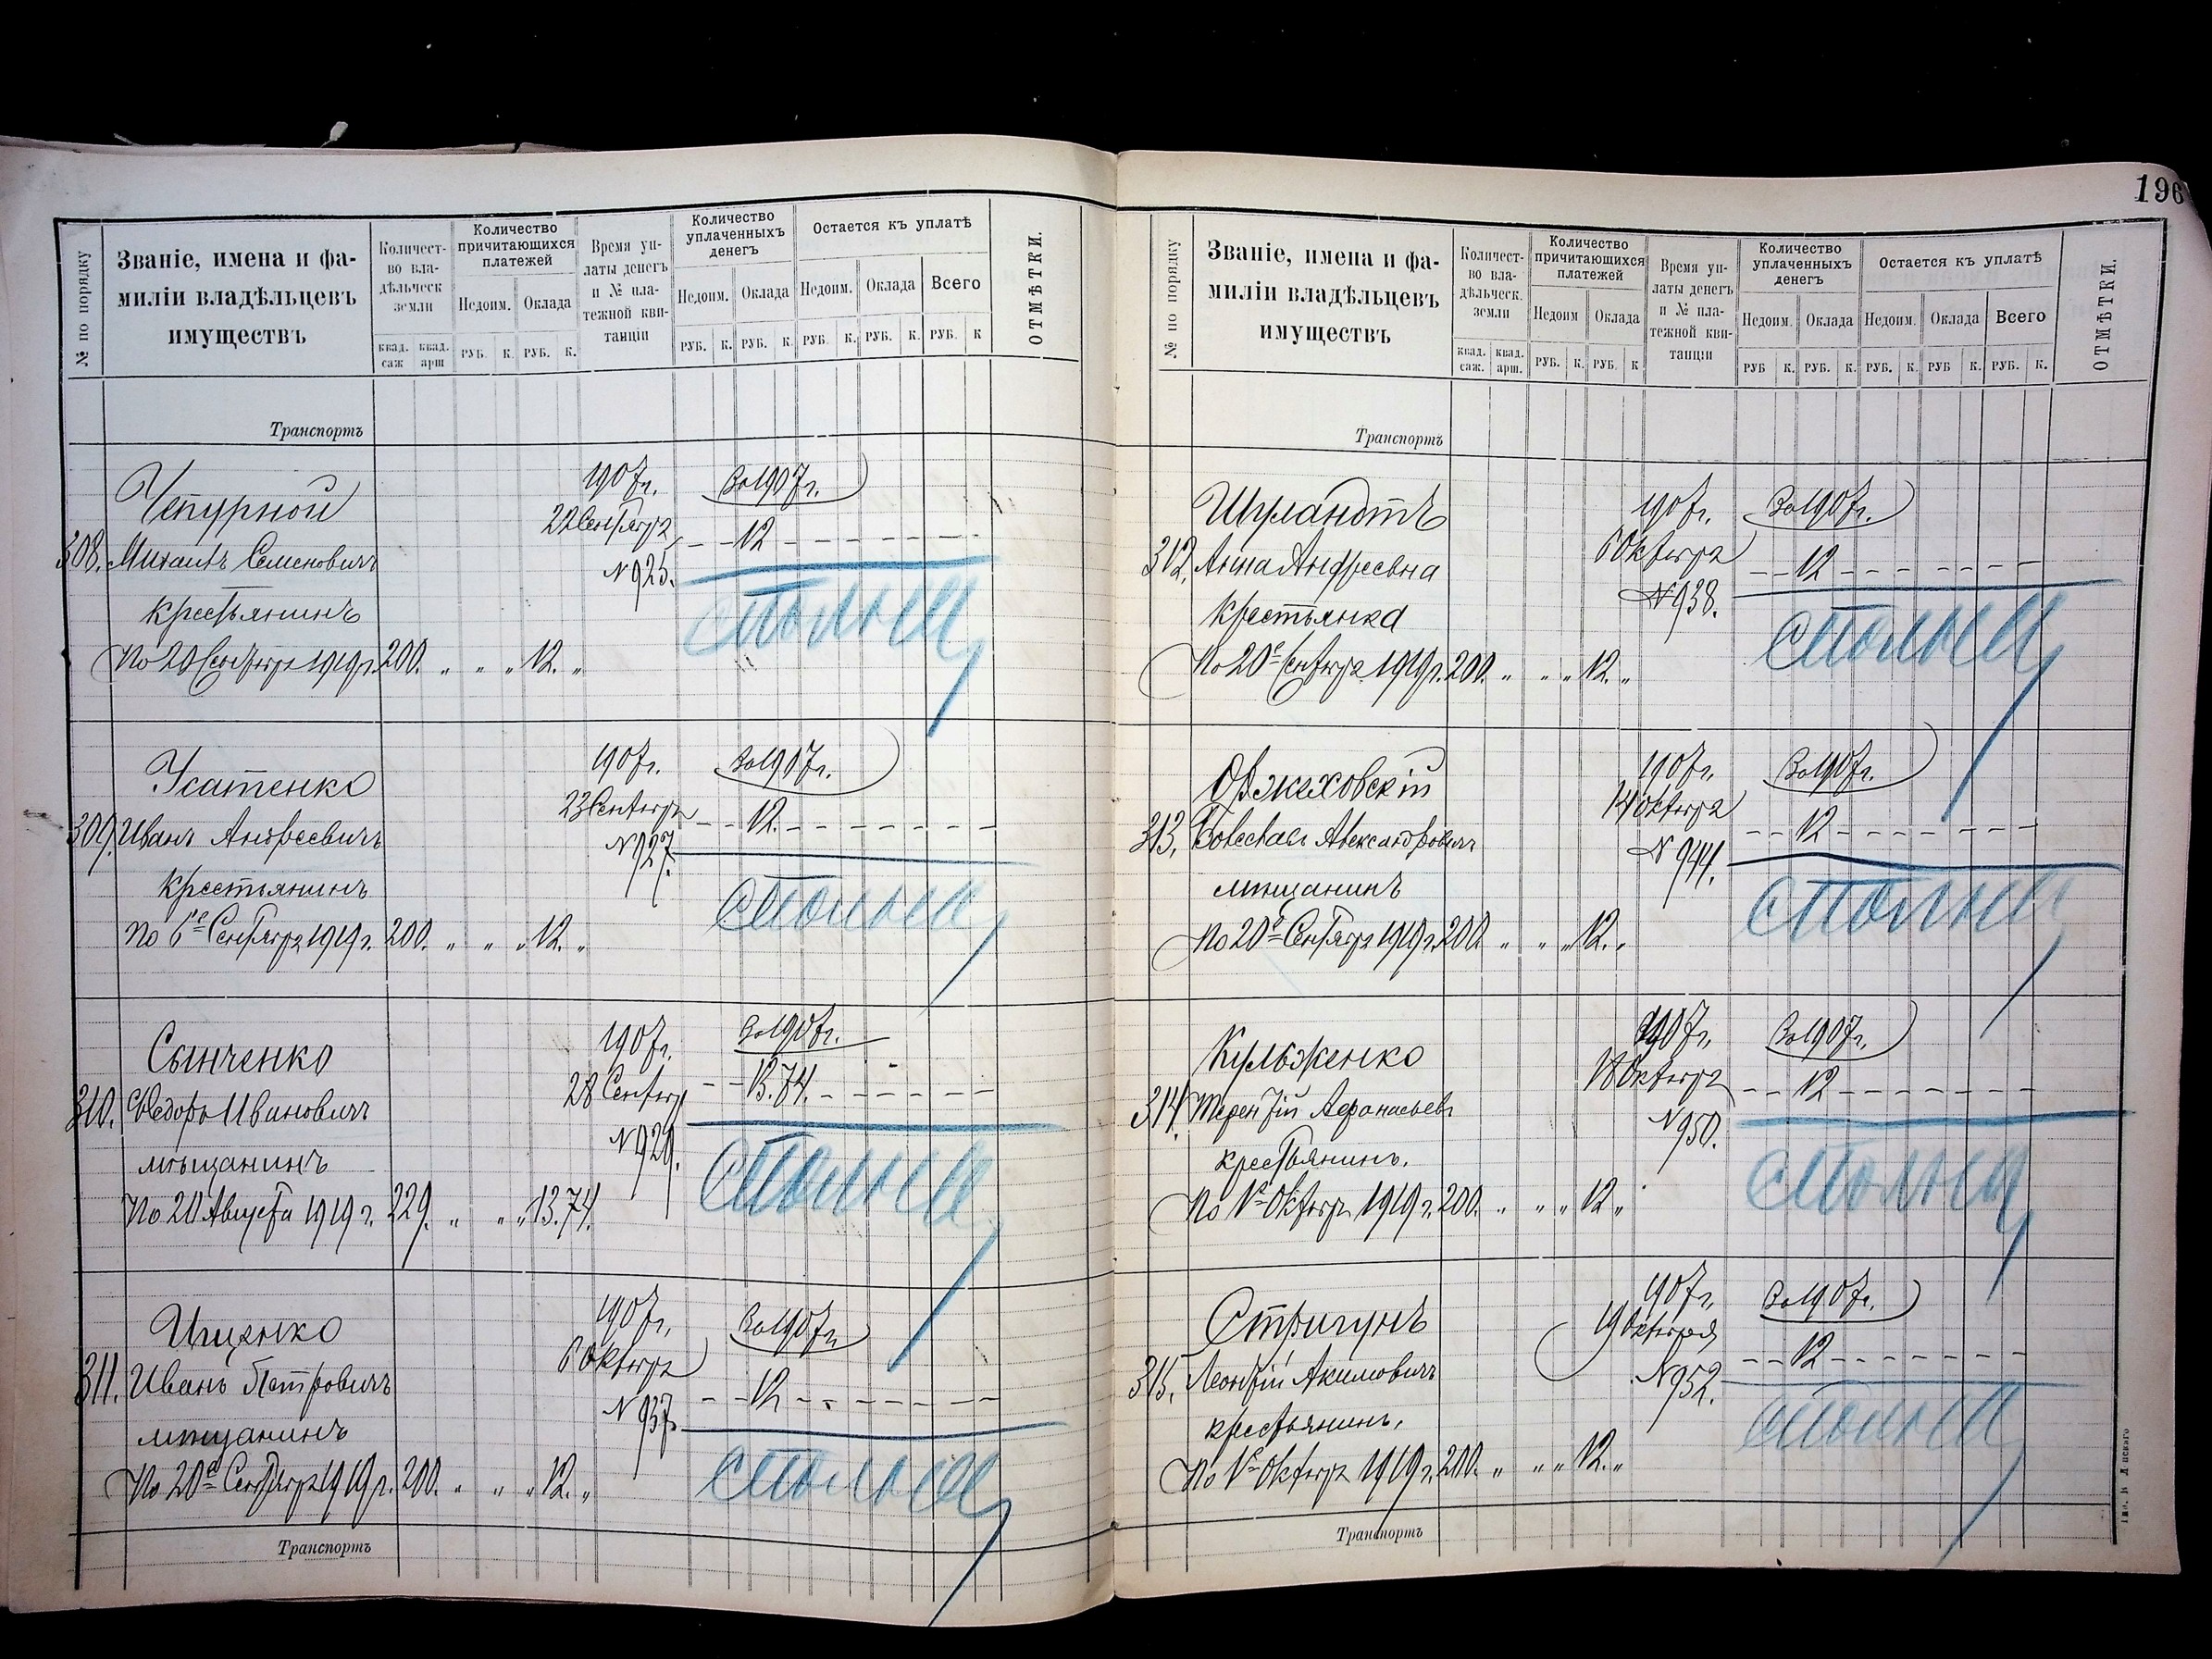 196
№ по порядку
Званіе, имена и фа-
миліи владѣльцевъ
имуществъ
Количест-
во вла-
дѣльческ
земли
квад. саж
квад. арш
Количество
причитающихся
платежей
Недоим.
Оклада
РУБ. К. РУБ. К.
Время уп-
латы денегъ
и № пла-
тежной кви-
танціи
Количество
уплаченныхъ
денегъ
Недоим. Оклада
РУБ. К. РУБ. К.
Остается къ уплатѣ
Недоим. Оклада Всего
РУБ. К. РУБ. К. РУБ. К
ОТМѢТКИ.
Транспортъ
Чепурной
308. Михаилъ Семеновичъ
крестьянинъ
По 20 Сентября 1919 г. 200. „ „ „ 12. „
1907г.
22 Сентября
№ 925.
За 1907г.
12
Усатенко
309. Иванъ Андреевичъ
крестьянинъ
По 6е Сентября 1919 г. 200. „ „ „ 12. „
1907г.
23 Сентября
№ 927.
За 1907г.
12.
Сынченко
310. Федоръ Ивановичъ
мѣщанинъ
По 20 Августа 1919 г. 229. „ „ „ 13.74.
1907г.
28 Сентяб
№ 929.
За 1907г.
13.74.
Ищенко
311. Иванъ Петровичъ
мѣщанинъ
По 20е Сентября 1919 г. 200. „ „ „ 12. „
1907г.
6 Октября
№ 937.
За 1907г.
12
Транспортъ
№ по порядку
Званіе, имена и фа-
миліи владѣльцевъ
имуществъ
Количест-
во вла-
дѣльческ.
земли
квад. саж.
квад. арш.
Количество
причитающихся
платежей
Недоим Оклада
РУБ. К. РУБ. К
Время уп-
латы денегъ
и № пла-
тежной кви-
танціи
Количество
уплаченныхъ
денегъ
Недоим. Оклада
РУБ К. РУБ. К.
Остается къ уплатѣ
Недоим. Оклада Всего
РУБ. К. РУБ К. РУБ. К.
ОТМѢТКИ.
Транспортъ
312. Анна Андреевна
крестьянка
По 20е Сентября 1919 г. 200. „ „ „ 12. „
1907г.
6 Октября
№ 938.
За 1907г.
12
Оржеховскій
313. Болеславъ Александровичъ
мѣщанинъ
По 20е Сентября 1919 г. 200 „ „ „ 12. „
1907г.
14 Октября
№ 944.
За 1907г.
12
Кульженко
314. Терентій Афанасьев
крестьянинъ.
По 1е Октября 1919 г. 200. „ „ „ 12 „
1907г.
18 Октября
№ 950.
За 1907г.
12
Стригунъ
315. Леонтій Акимовичъ
крестьянинъ,
По 1е Октября 1919 г. 200. „ „ „ 12. „
1907г.
19 Октября
№ 952.
За 1907г.
12
Транспортъ